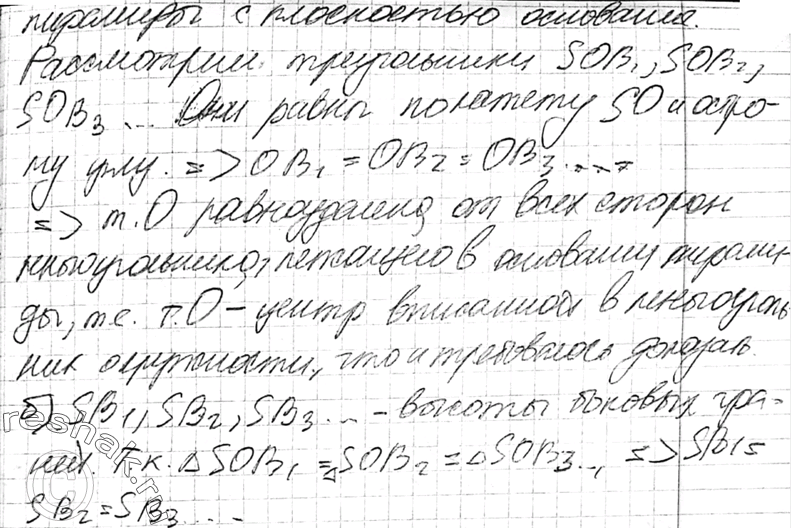 пирамиды с плоскостью основания.
Рассмотрим треугольники SOB₁, SOB₂,
SOB₃ ... Они равны по катету SO и остро-
му углу. => OB₁ = OB₂ = OB₃ ....
=> т.О равноудалена от всех сторон
многоугольника, лежащего в основании пирами-
ды, т.е. т.О – центр вписанной в многоуголь
ник окружности, что и требовалось доказать.
б) SB₁, SB₂, SB₃ ... – высоты боковых гра-
ней. Т.к. △SOB₁ = △SOB₂ = △SOB₃..., => SB₁ =
SB₂ = SB₃ ...
reshak.ru